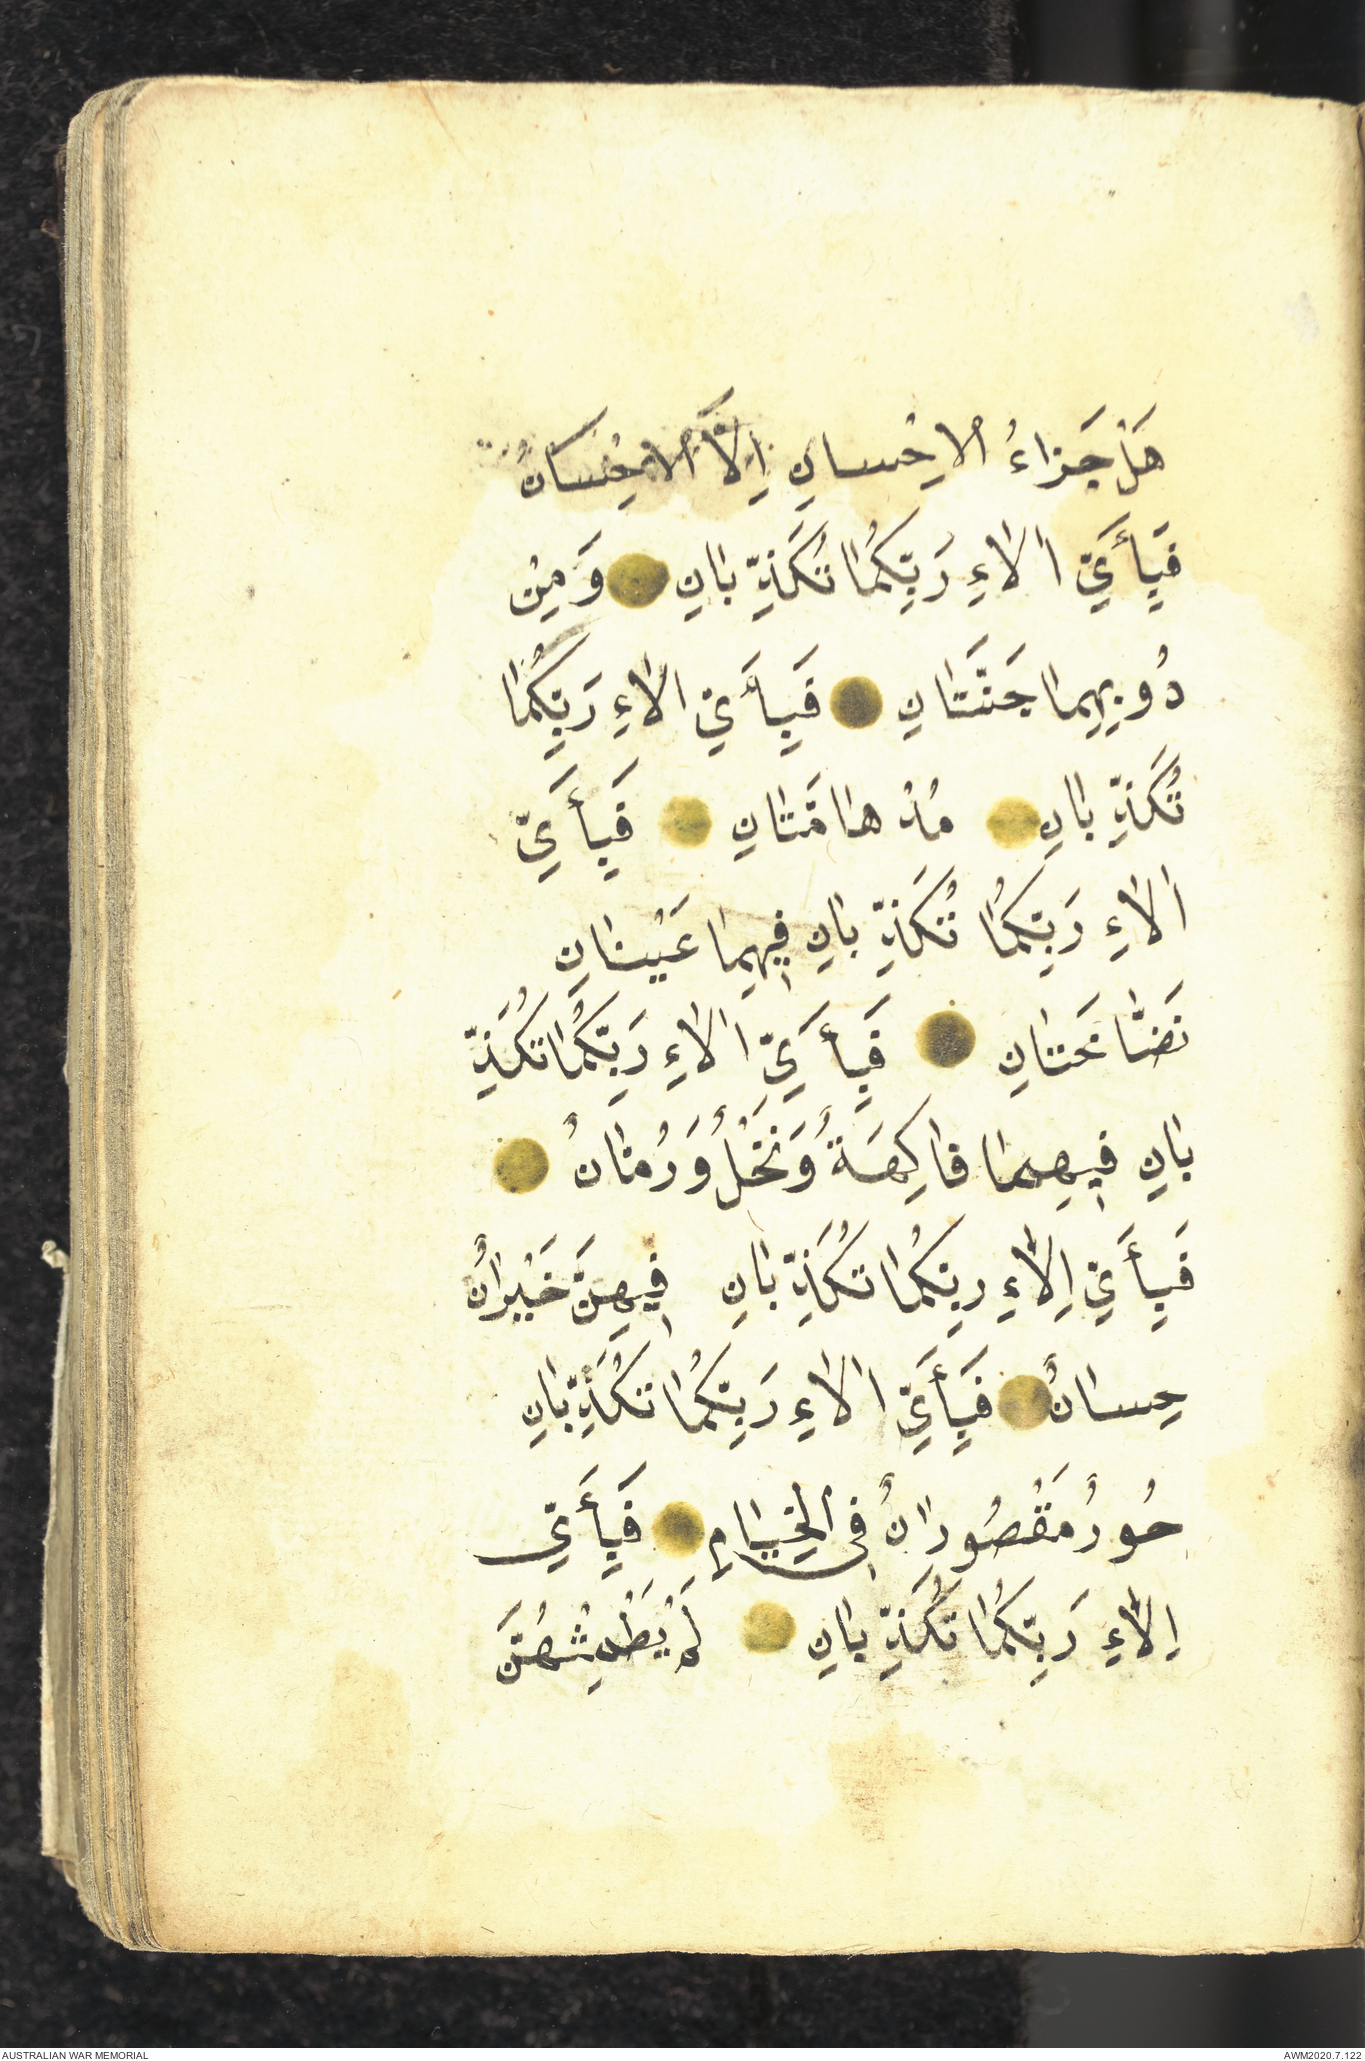 هَلْ جَزَاءُ الْاِحْسانِ اِلَّا الْاحْسَانُ
فَبِأَيِّ اٰلاءِ رَبِّكُمَا تُكَذِّ بَانِ وَمِنْ
دُونِهِما جَنَّتَانِ فَبِأَيِّ اٰلاءِ رَبِّكُمَا
تُكَذِّ بَانِ مُدْ هَا مَّتَانِ فَبِأَيِّ
اٰلاءِ رَبِّكُمَا تُكَذِّ بَانِ فِيهِمَا عَيْنَانِ
نَضَّاخَتَانِ فَبِأَيِّ اٰلاءِ رَبِّكُمَا تُكَذِّ
بَانِ فِيهِمَا فَاكِهَةٌ وَنَخْلٌ وَرُمَّانٌ
فَبِأَيِّ اٰلاءِ ربِكُمَا تُكَذِّ بَانِ فِيهِنَّ خَيْرَاتٌ
حِسانٌ فَبِأَيِّ اٰلاءِ رَبِّكُمَا تُكَذِّبَانِ
حُورٌ مَقْصُورَاتٌ فِى الْخِيَامِ فَبِأَيِّ
اٰلاءِ رَبِّكُمَا تُكَذِّ بَانِ لَمْ يَطْمِثْهُنَّ
AUSTRALIAN WAR MEMORIAL AWM2020.7.122